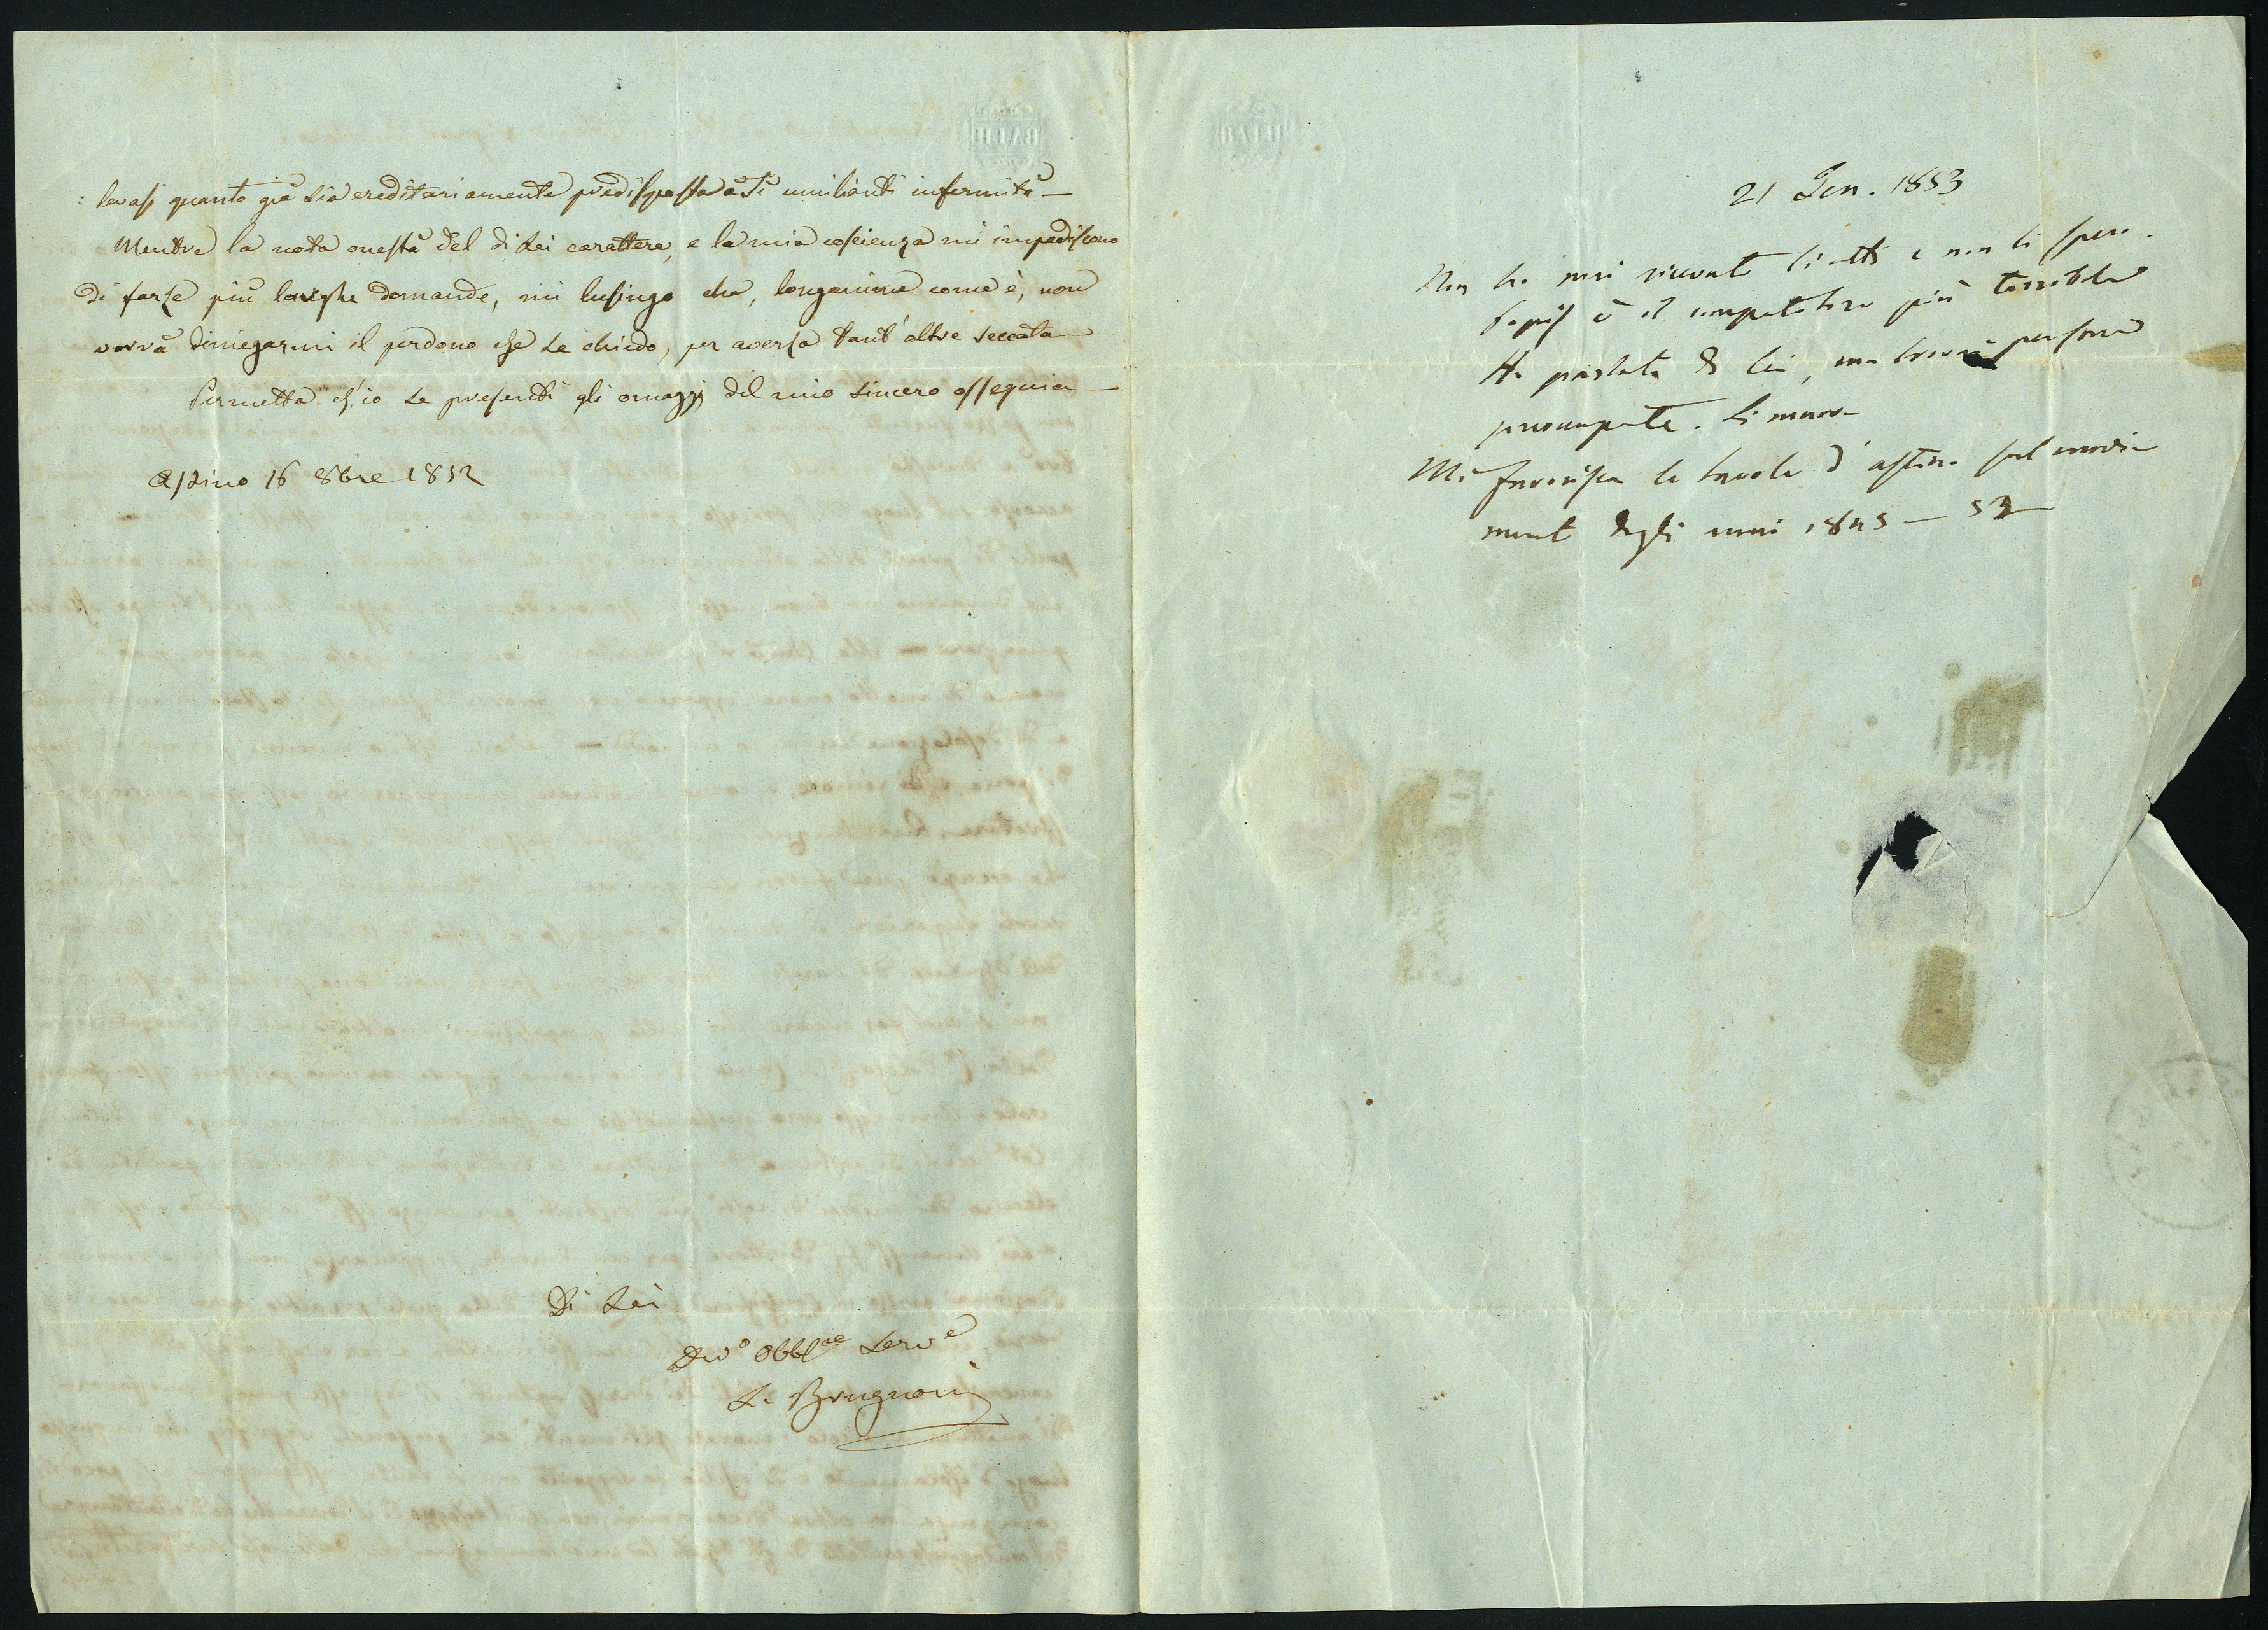 BATH
: levasi quanto già sia ereditariamente predisposta a sì umilianti infermità —
Mentre la nota onestà del di Lei carattere, e la mia coscienza mi impediscono
di farle più larghe domande, mi lusingo che, longanime come è, non
vorrà diniegarmi il perdono che Le chiedo, per averla tant'oltre seccata —
Permetta ch'io Le presenti gli omaggi del mio sincero ossequio —
Astino 16 8bre 1852
Di Lei
Devo Obblmo Serve
L. Brugnoni
21 Gen. 1853
Non ho mai ricevuto li atti e non li spero.
è il competitore più terribile
Ho parlato di Lei, ma trovai persone
preoccupate.
Mi favorisca le tavole d'Astino sul movi-
mento degli anni 1845 — 52